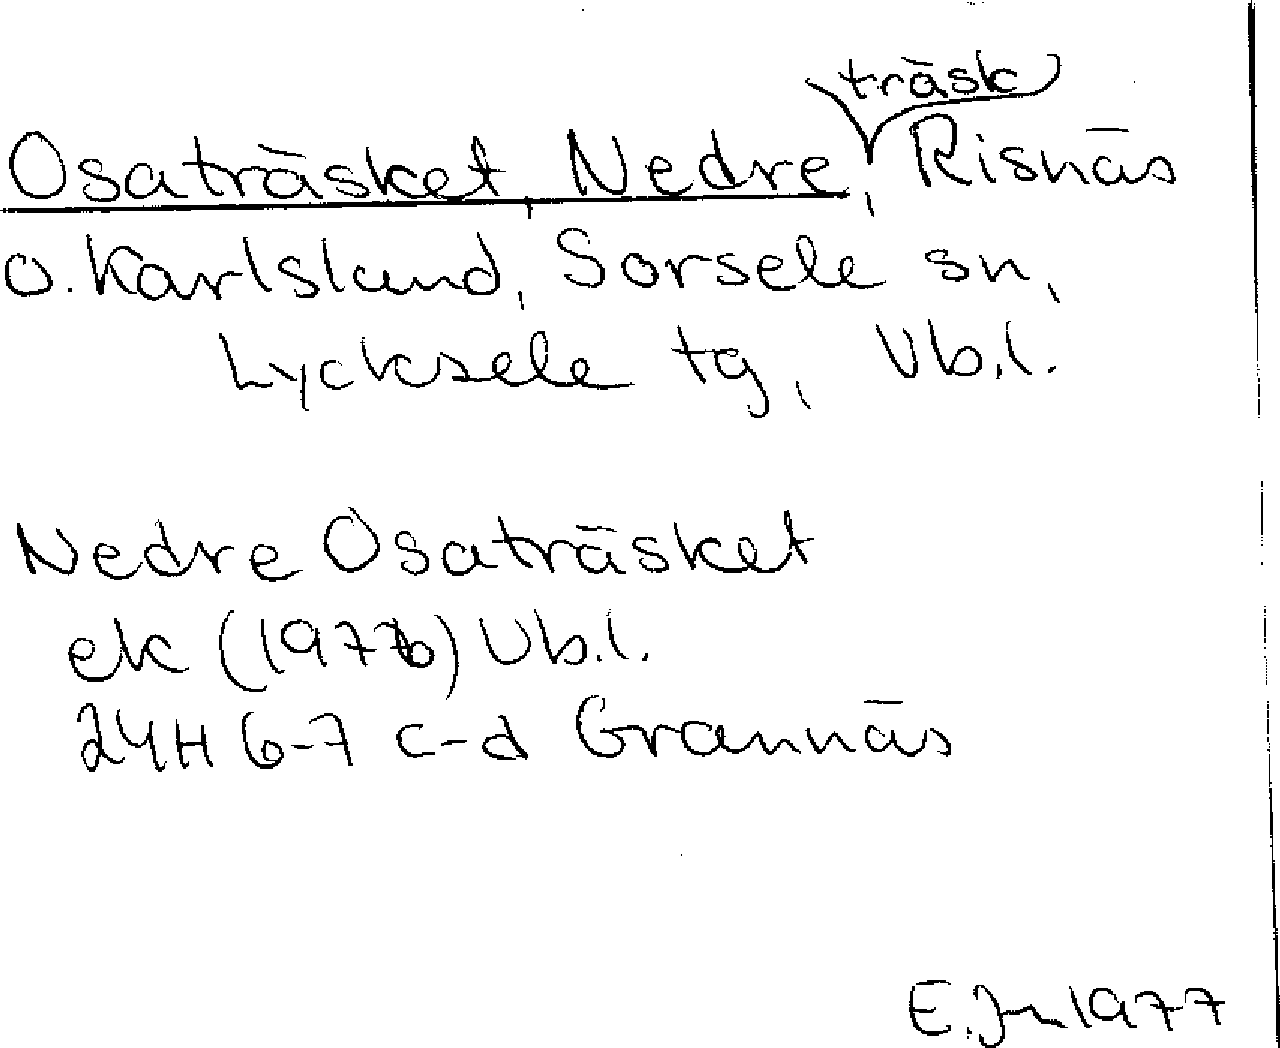 träsk
Osaträsket, Nedre, Risnäs
o. Karlslund, Sorsele sn,
Lycksele tg, Vb.l.
Nedre Osaträsket
ek (1976) Vb.l.
24H 6-7 c-d Grannäs
E. Jn 1977